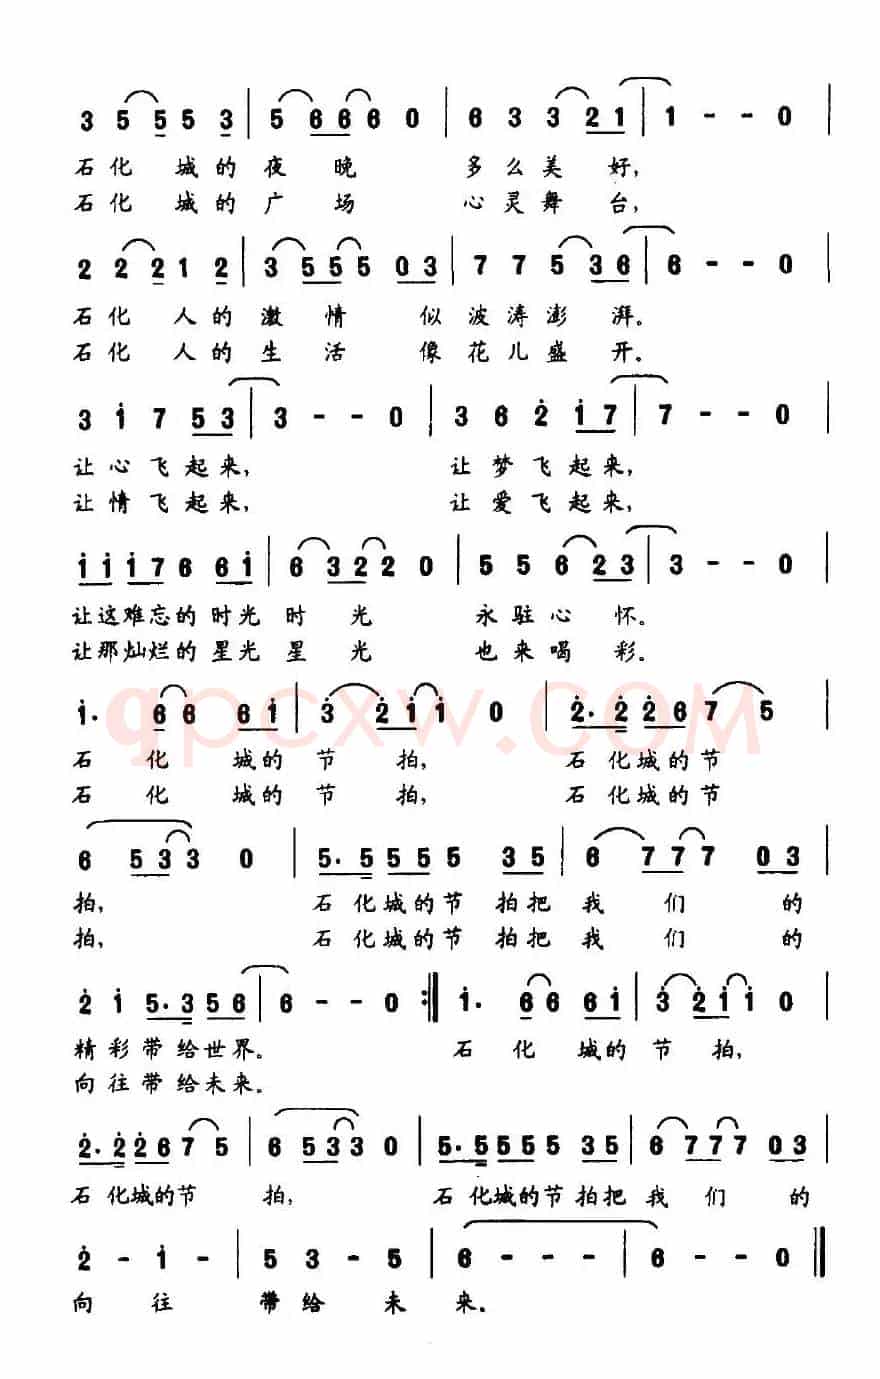 3 5 5 5 3 | 5 6 6 6 0 | 6 3 3 2 1 | 1 - - 0 |
石化 城的夜晚 多么美 好,
石化 城的广场 心灵舞 台,
2 2 2 1 2 | 3 5 5 5 0 3 | 7 7 5 3 6 | 6 - - 0 |
石化 人的激情 似波涛澎 湃。
石化 人的生活 像花儿盛 开。
3 i 7 5 3 | 3 - - 0 | 3 6 2̇ i 7 | 7 - - 0 |
让心飞起来, 让梦飞起来,
让情飞起来, 让爱飞起来,
i i i 7 6 6 i | 6 3 2 2 0 | 5 5 6 2 3 | 3 - - 0 |
让这难忘的时光时 光 永驻心 怀。
让那灿烂的星光星 光 也来喝 彩。
i· 6 6 6 i | 3̇ 2̇ i i 0 | 2̇· 2̇ 2̇ 6 7 5
石 化 城的节 拍, 石化城的节
石 化 城的节 拍, 石化城的节
qpcxw.COM
6 5 3 3 0 | 5· 5 5 5 5 5 3 5 | 6 7 7 7 0 3 |
拍, 石化城的节 拍把我 们 的
拍, 石化城的节 拍把我 们 的
2̇ i 5· 3 5 6 | 6 - - 0 :‖ i· 6 6 6 i | 3̇ 2̇ i i 0 |
精彩带给世界。 石 化 城的节 拍,
向往带给未来。
2̇· 2̇ 2̇ 6 7 5 | 6 5 3 3 0 | 5· 5 5 5 5 5 3 5 | 6 7 7 7 0 3 |
石化城的节 拍, 石化城的节拍把我 们 的
2̇ - i - | 5 3 - 5 | 6 - - - | 6 - - 0 ‖
向 往 带给 未 来。